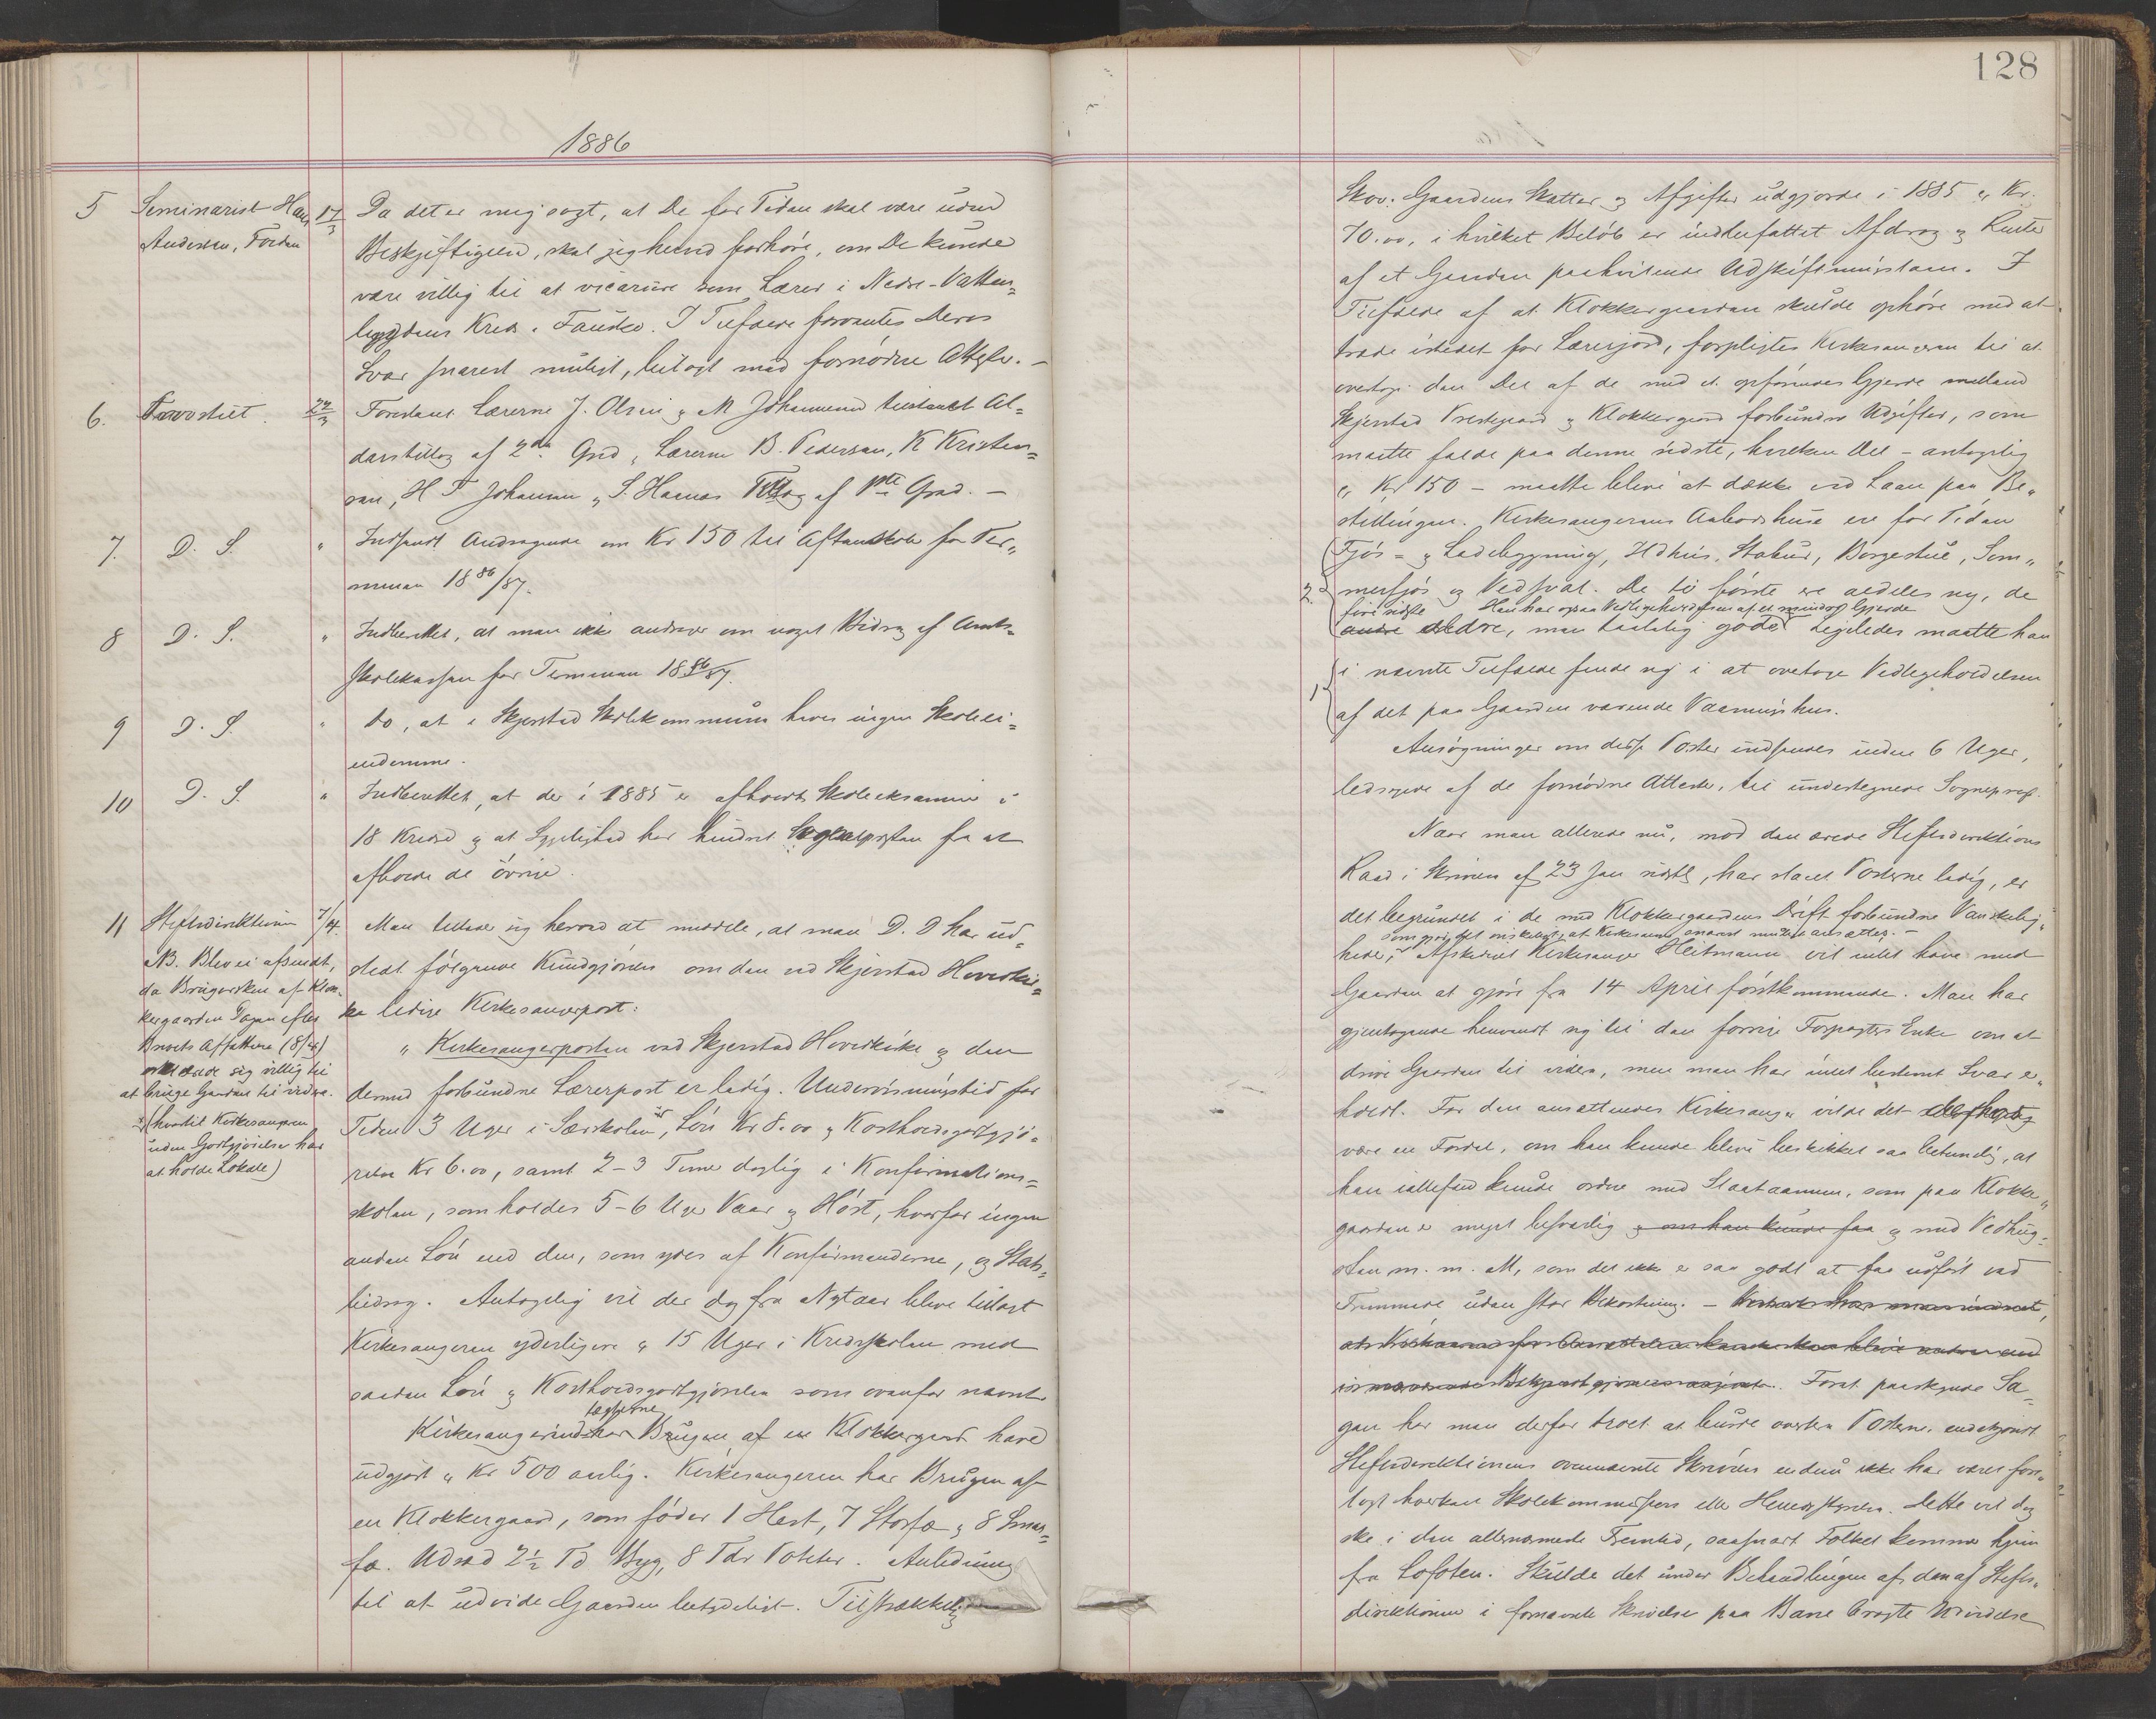 128
1886
5 Seminarist Hans 17/3 Da det er mig sagt, at De for Tiden skal være uden
Andersen, Fordan
Beskjæftigelse, skal jeg herved forhøre, om De kunde
være villig til at vicariere som Lærer i Nedre-Vatten=
bygdens Kreds i Fauske. I Tilfælde forventes Deres
Svar snarest muligt, bilagt med fornødne Attester. —
6. Provstiet. 24/3 Foreslaaet Lærerne J. Olsen og M Johannesen tilstaaet Al=
derstillæg af 2den Grad, Lærerne B. Pedersen, K Kristen=
sen, H T Johansen, S. Haanes Tillæg af 1ste Grad. —
7. D. S. " Indsendt Andragende om Kr 150 til Aftenskole for Ter„
minen 1886/87.
8 D. S. " Indberettet, at man ikke andrager om noget Bidrag af Amts=
skolekassen for Terminen 1886/87.
9 D. S. " do, at i Skjerstad Skolekommune haves ingen Skoleei=
endomme.
10 D. S. " Indberettet, at der i 1885 er afholdt Skoleeksamen i
18 Kredse og at Sygelighed har hindret Sognepresten fra at
afholde de øvrige.
11 Stiftsdirektionen 7/4. Man tillader sig herved at meddele, at man D. D har ud=
NB. Blev ei afsendt,
da Brugersken af Klok=
kergaarden Dagen efter
Brevets Affattelse (8/4)
erklærede sig villig til
at bruge Gaarden til videre.
x (hvortil Kirkesangeren
uden Godtgjørelse har
at holde Lokale)
stedt følgende Kundgjørelse om den ved Skjerstad Hovedkir=
ke ledige Kirkesangerpost:
" Kirkesangerposten ved Skjerstad Hovedkirke og den
dermed forbundne Lærerpost er ledig. Undervisningstid for
Tiden 3 Uger i Lærskolen x, Løn Kr 8.00 og Kostholdsgodtgjø=
relse Kr 6.00, samt 2-3 Timer daglig i Konfirmations=
skolen, som holdes 5-6 Uger Vaar og Høst, hvorfor ingen
anden Løn end den, som ydes af Konfirmanderne, og Stats=
bidrag. Antagelig vil der dog fra Nytaar blive tillagt
Kirkesangeren yderligere c 15 Uger i Kredsskolen med
saadan Løn og Kostholdsgodtgjørelse som ovenfor nævnt.
Kirkesangerindtægterne har Brugen af en Klokkergaard have
udgjort c Kr 500 aarlig. Kirkesangeren har Brugen af
en Klokkergaard, som føder 1 Hest, 7 Storfæ og 8 Smaa=
fæ. Udsæd 2½ Td Byg, 8 Tdr Poteter. Anledning
til at udvide Gaarden betydeligt. Tilstrækkelig
Skov. Gaardens Skatter og Afgifter udgjorde i 1885 c Kr.
70.00, i hvilket Beløb er indbefattet Afdrag og Renter
af et Gaarden paahvilende Udskiftningslaan. I
Tilfælde af at Klokkergaarden skulde ophøre med at
træde istedet for Lærerjord, forpligtes Kirkesangeren til at
overtage den Del af de med et opførendes Gjerde mellem
Skjerstad Prestegaard og Klokkergaard forbundne Udgifter, som
maatte falde paa denne sidste, hvilken Del — antagelig
c Kr 150 — maatte blive at dække ved Laan paa Be„
stillingen. Kirkesangerens Aabodshuse ere for Tiden
Fjøs = og Ladebygning, Ildhus, Stabur, Borgestue, Som„
2. merfjøs og Vedskot. De to første ere aldeles ny, de
fire sidste Han har ogsaa Vedligeholdelsen af et mindre Gjerde
andre ældre, men taalelig gode. Ligeledes maatte han
1 i nævnte Tilfælde finde sig i at overtage Vedligeholdelsen
af det paa Gaarden værende Vaaningshus.
Ansøgninger om disse Poster indsendes inden 6 Uger,
ledsagede af de fornødne Attester, til undertegnede Sogneprest.
Naar man allerede nu, mod den ærede Stiftsdirektions
Raad i Skrivelse af 23 Jan sidstl, har slaaet Posterne ledig, er
det begrundet i de med Klokkergaardens Drift forbundne Vanskelig„
som gjør det ønskeligt, at Kirkesanger snarest muligt ansættes. —
heder, Afskediget Kirkesanger Heitmann vil intet have med
Gaarden at gjøre fra 14 April førstkommende. Man har
gjentagende henvendt sig til den forrige Forpagters Enke om at
drive Gaarden til videre, men man har intet bestemt Svar er„
holdt. For den ansættendes Kirkesanger vilde det
være en Fordel, om han kunde blive beskikket saa betimelig, at
han iallefald kunde ordne med Slaataannen, som paa Klokker„
gaarden er meget besværlig og om han kunde faa og med Vedhug=
sten m. m. M, som det ikke er saa godt at faa udført ved
Fremmede uden stor Bekostning. —
Forat paaskynde Sa=
gen har man derfor troet at burde averter Posterne, endskjønt
Stiftsdirektionens ovennævnte Skrivelse endnu ikke har været fore„
lagt hverken Skolekommissionen eller Herredsstyrelsen. Dette vil dog
ske i den allernærmeste Fremtid, saasnart Folket kommer hjem
fra Lofoten. Skulde det under Behandlingen af den af Stifts„
direktionen i fornævnte Skrivelse paa Bane bragte Udvidelse